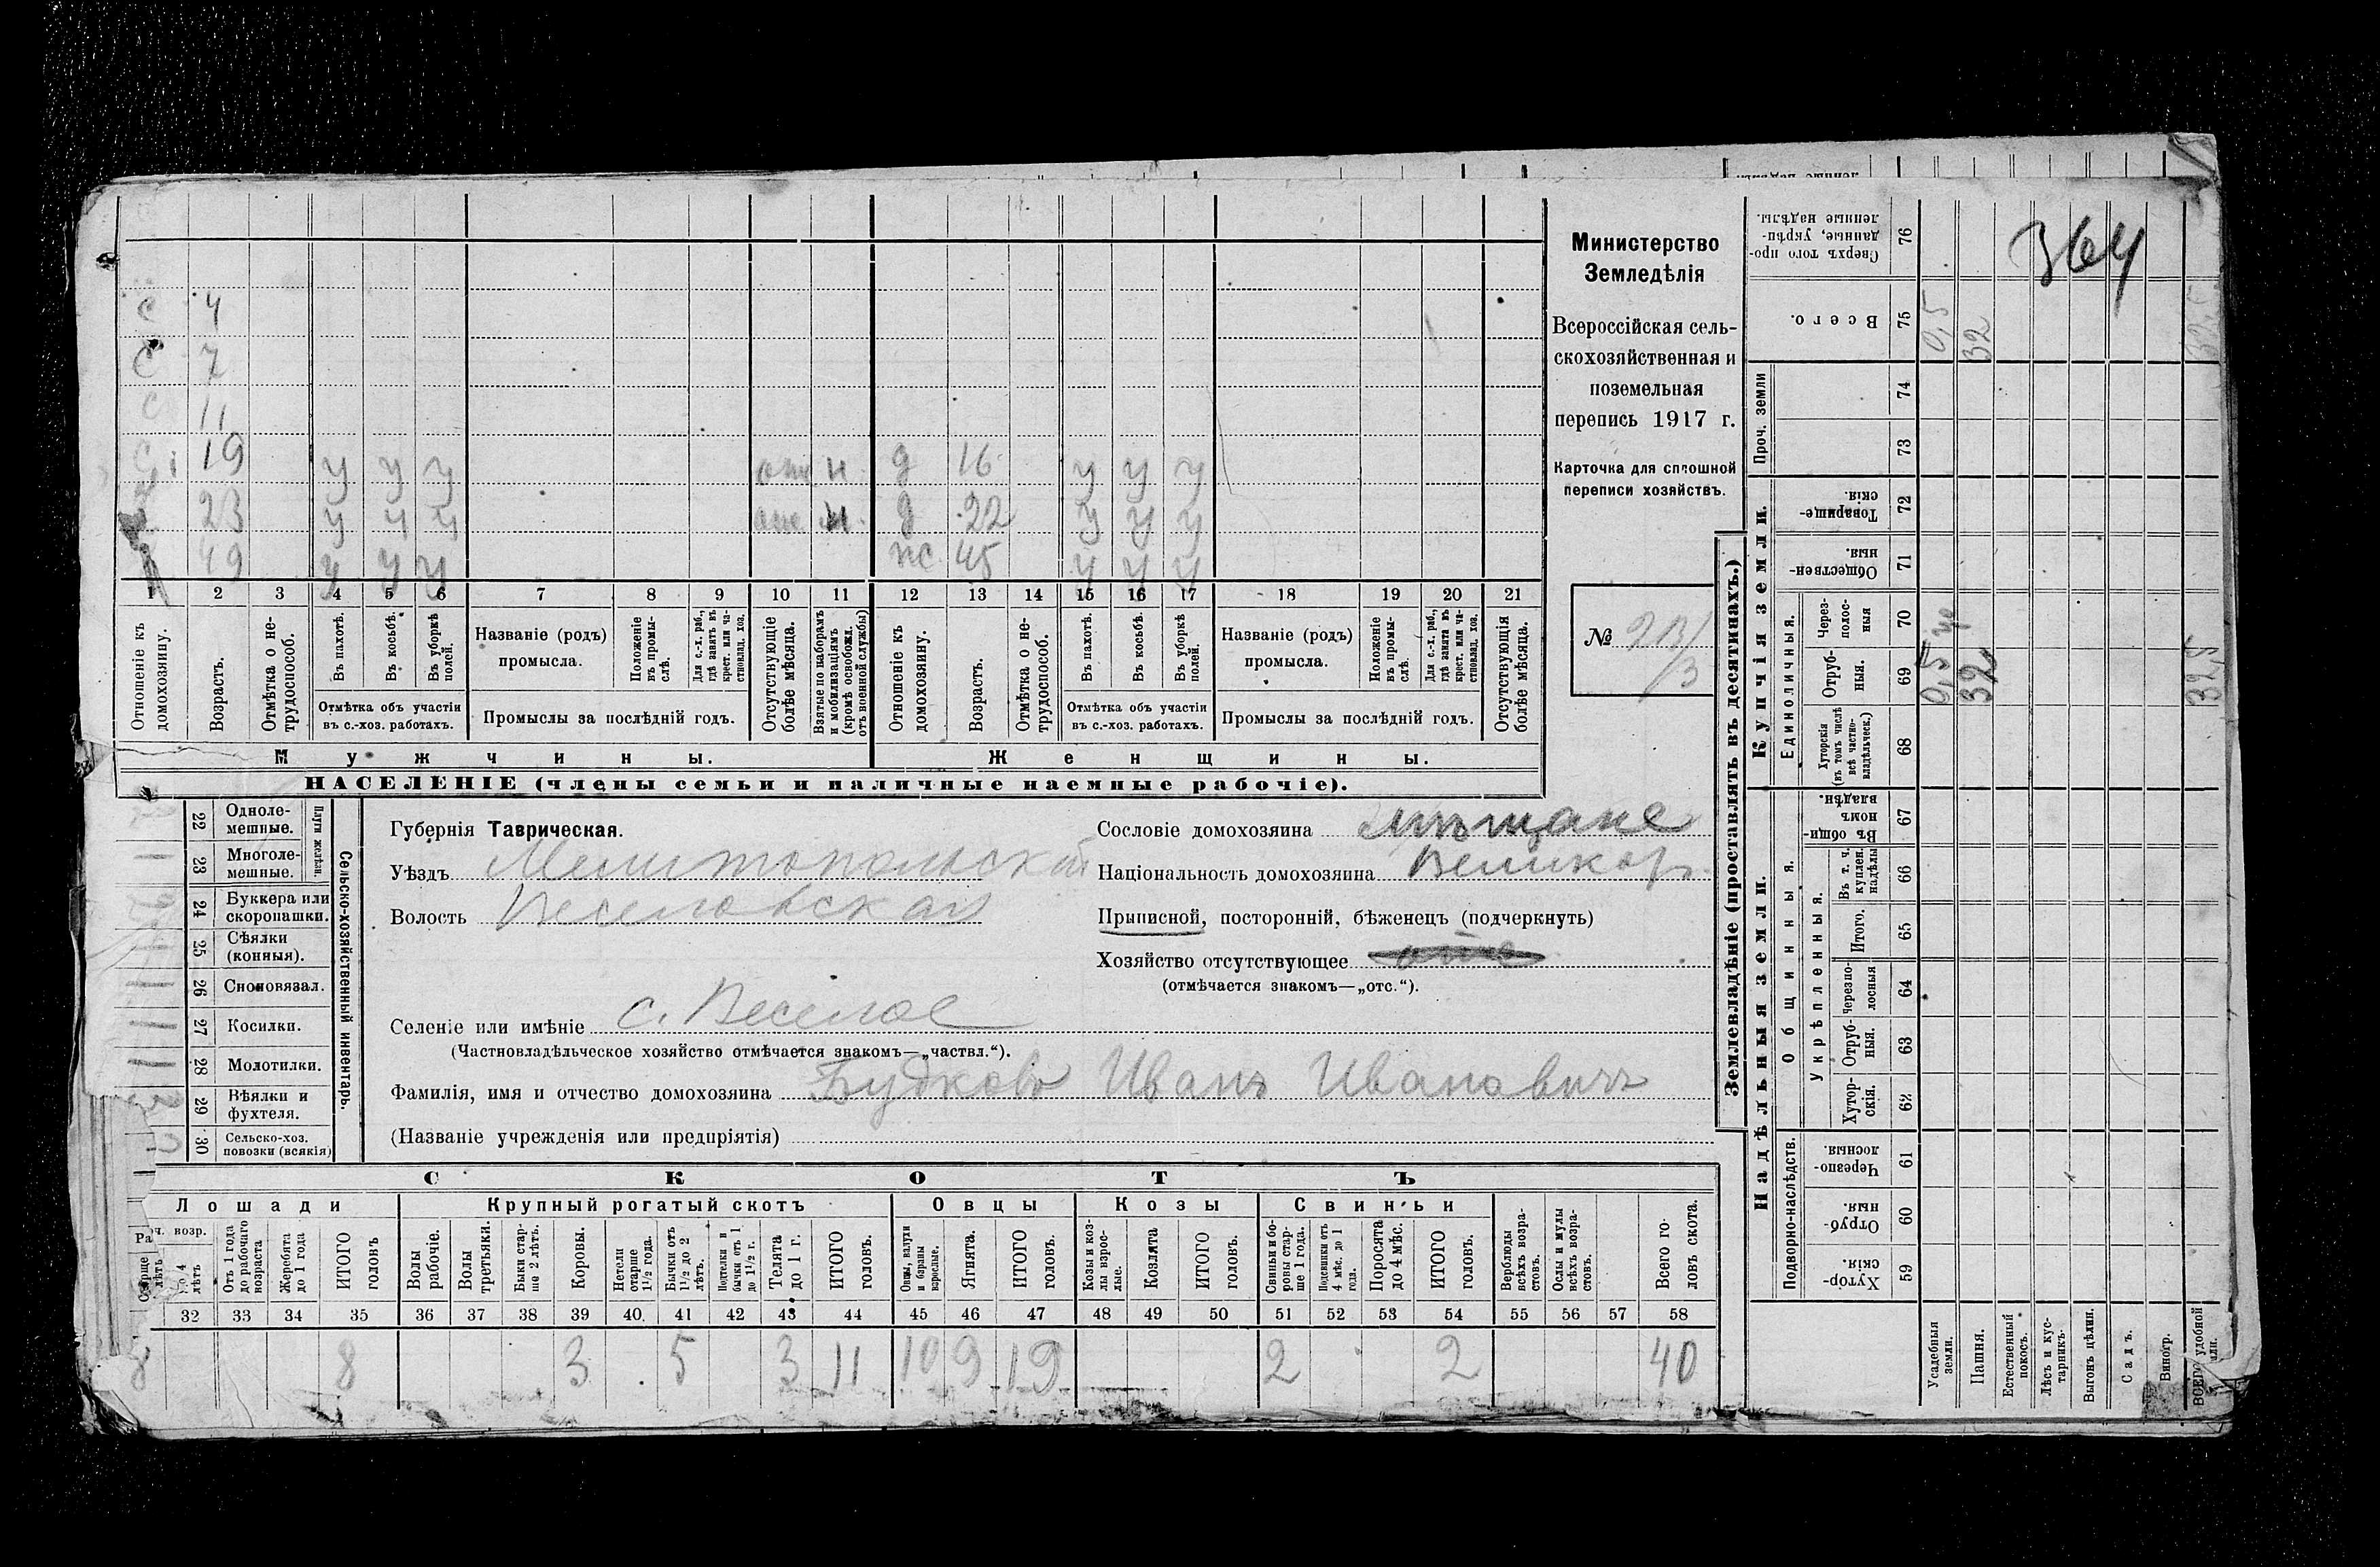 364
Министерство
Земледѣлія
Всероссійская сель-
скохозяйственная и
поземельная
перепись 1917 г.
Карточка для сплошной
переписи хозяйствъ.
№
С 4
С 7
С 11
С 19 у у у отс н д 16 у у у
23 у у у отс н д 22 у у у
49 у у у ж 45 у у у
1 2 3 4 5 6 7 8 9 10 11 12 13 14 15 16 17 18 19 20 21
Отношеніе къ домохозяину.
Возрастъ.
Отмѣтка о не-трудоспособ.
Въ пахотѣ.
Въ косьбѣ.
Въ уборкѣ полей.
Отмѣтка объ участіи
въ с.-хоз. работахъ.
Названіе (родъ)
промысла.
Положеніе въ промы-слѣ.
Для с.-х. раб., гдѣ занятъ въ крест. или ча-стновлад. хоз.
Промыслы за послѣдній годъ.
Отсутствующіе болѣе мѣсяца.
Взятые по наборамъ и мобилизаціямъ (кромѣ освобожд. отъ военной службы)
Отношеніе къ домохозяину.
Возрастъ.
Отмѣтка о не-трудоспособ.
Въ пахотѣ.
Въ косьбѣ.
Въ уборкѣ полей.
Отмѣтка объ участіи
въ с.-хоз. работахъ.
Названіе (родъ)
промысла.
Положеніе въ промы-слѣ.
Для с.-х. раб., гдѣ занята въ крест. или ча-стновлад. хоз.
Промыслы за послѣдній годъ.
Отсутствующія болѣе мѣсяца.
Мужчины. Женщины.
НАСЕЛЕНІЕ (члены семьи и наличные наемные рабочіе).
22 Одноле-мешные.
23 Многоле-мешные.
Плуги желѣзн.
24 Буккера или скоропашки.
25 Сѣялки (конныя).
26 Сноповязал.
27 Косилки.
28 Молотилки.
29 Вѣялки и фухтеля.
30 Сельско-хоз. повозки (всякія)
Сельско-хозяйственный инвентарь.
Губернія Таврическая.
Уѣздъ Мелитопольский
Волость Веселовская
Селеніе или имѣніе с. Веселое
(Частновладѣльческое хозяйство отмѣчается знакомъ—„частвл.“).
Фамилія, имя и отчество домохозяина Будковъ Иванъ Ивановичъ
(Названіе учрежденія или предпріятія)
Сословіе домохозяина мѣщане
Національность домохозяина Великор.
Приписной, посторонній, бѣженецъ (подчеркнуть)
Хозяйство отсутствующее отс
(отмѣчается знакомъ—„отс.“).
СКОТЪ
Лошади Крупный рогатый скотъ Овцы Козы Свиньи
Отъ 1 года до рабочаго возраста
Жеребята до 1 года
ИТОГО головъ
Волы рабочіе.
Волы третьяки.
Быки стар-ше 2 лѣтъ.
Коровы.
Нетели старше 1½ года.
Бычки отъ 1½ до 2 лѣтъ.
Подтелки и бычки отъ 1 до 1½ г.
Телята до 1 г.
ИТОГО головъ.
Овцы, валухи и бараны взрослые.
Ягнята.
ИТОГО головъ.
Козы и коз-лы взрос-лые.
Козлята
ИТОГО головъ.
Свиньи и бо-ровы стар-ше 1 года.
Подсвинки отъ 4 мѣс. до 1 года.
Поросята до 4 мѣс.
ИТОГО головъ.
Верблюды всѣхъ возра-стовъ.
Ослы и мулы всѣхъ возра-стовъ.
Всего го-ловъ скота.
32 33 34 35 36 37 38 39 40 41 42 43 44 45 46 47 48 49 50 51 52 53 54 55 56 57 58
8 8 3 5 3 11 10 9 19 2 2 40
Землевладѣніе (проставлять въ десятинахъ.)
Купчія земли.
Надѣльныя земли.
Сверхъ того про-данные, укрѣп-ленные надѣлы. 76
Всего. 75 0,5 32 32,5
Проч. земли 74
73
Товарище-скія. 72
Обществен-ныя. 71
Единоличныя.
Через-полос-ныя 70
Отруб-ныя. 69 0,5 32 32,5
Хуторскія (въ томъ числѣ всѣ частно-владѣльческ.) 68
Въ общи-номъ владѣн. 67
Общинныя.
Укрѣпленныя.
Въ т. ч. куплен. надѣлы 66
Итого. 65
Черезпо-лосныя 64
Отруб-ныя. 63
Хутор-скія. 62
Подворно-наслѣдств.
Черезпо-лосныя. 61
Отруб-ныя. 60
Хутор-скія. 59
Усадебныя земли.
Пашня.
Естественный покосъ.
Лѣсъ и кус-тарникъ.
Выгонъ цѣлин.
Садъ.
Виногр.
ВСЕГО удобной